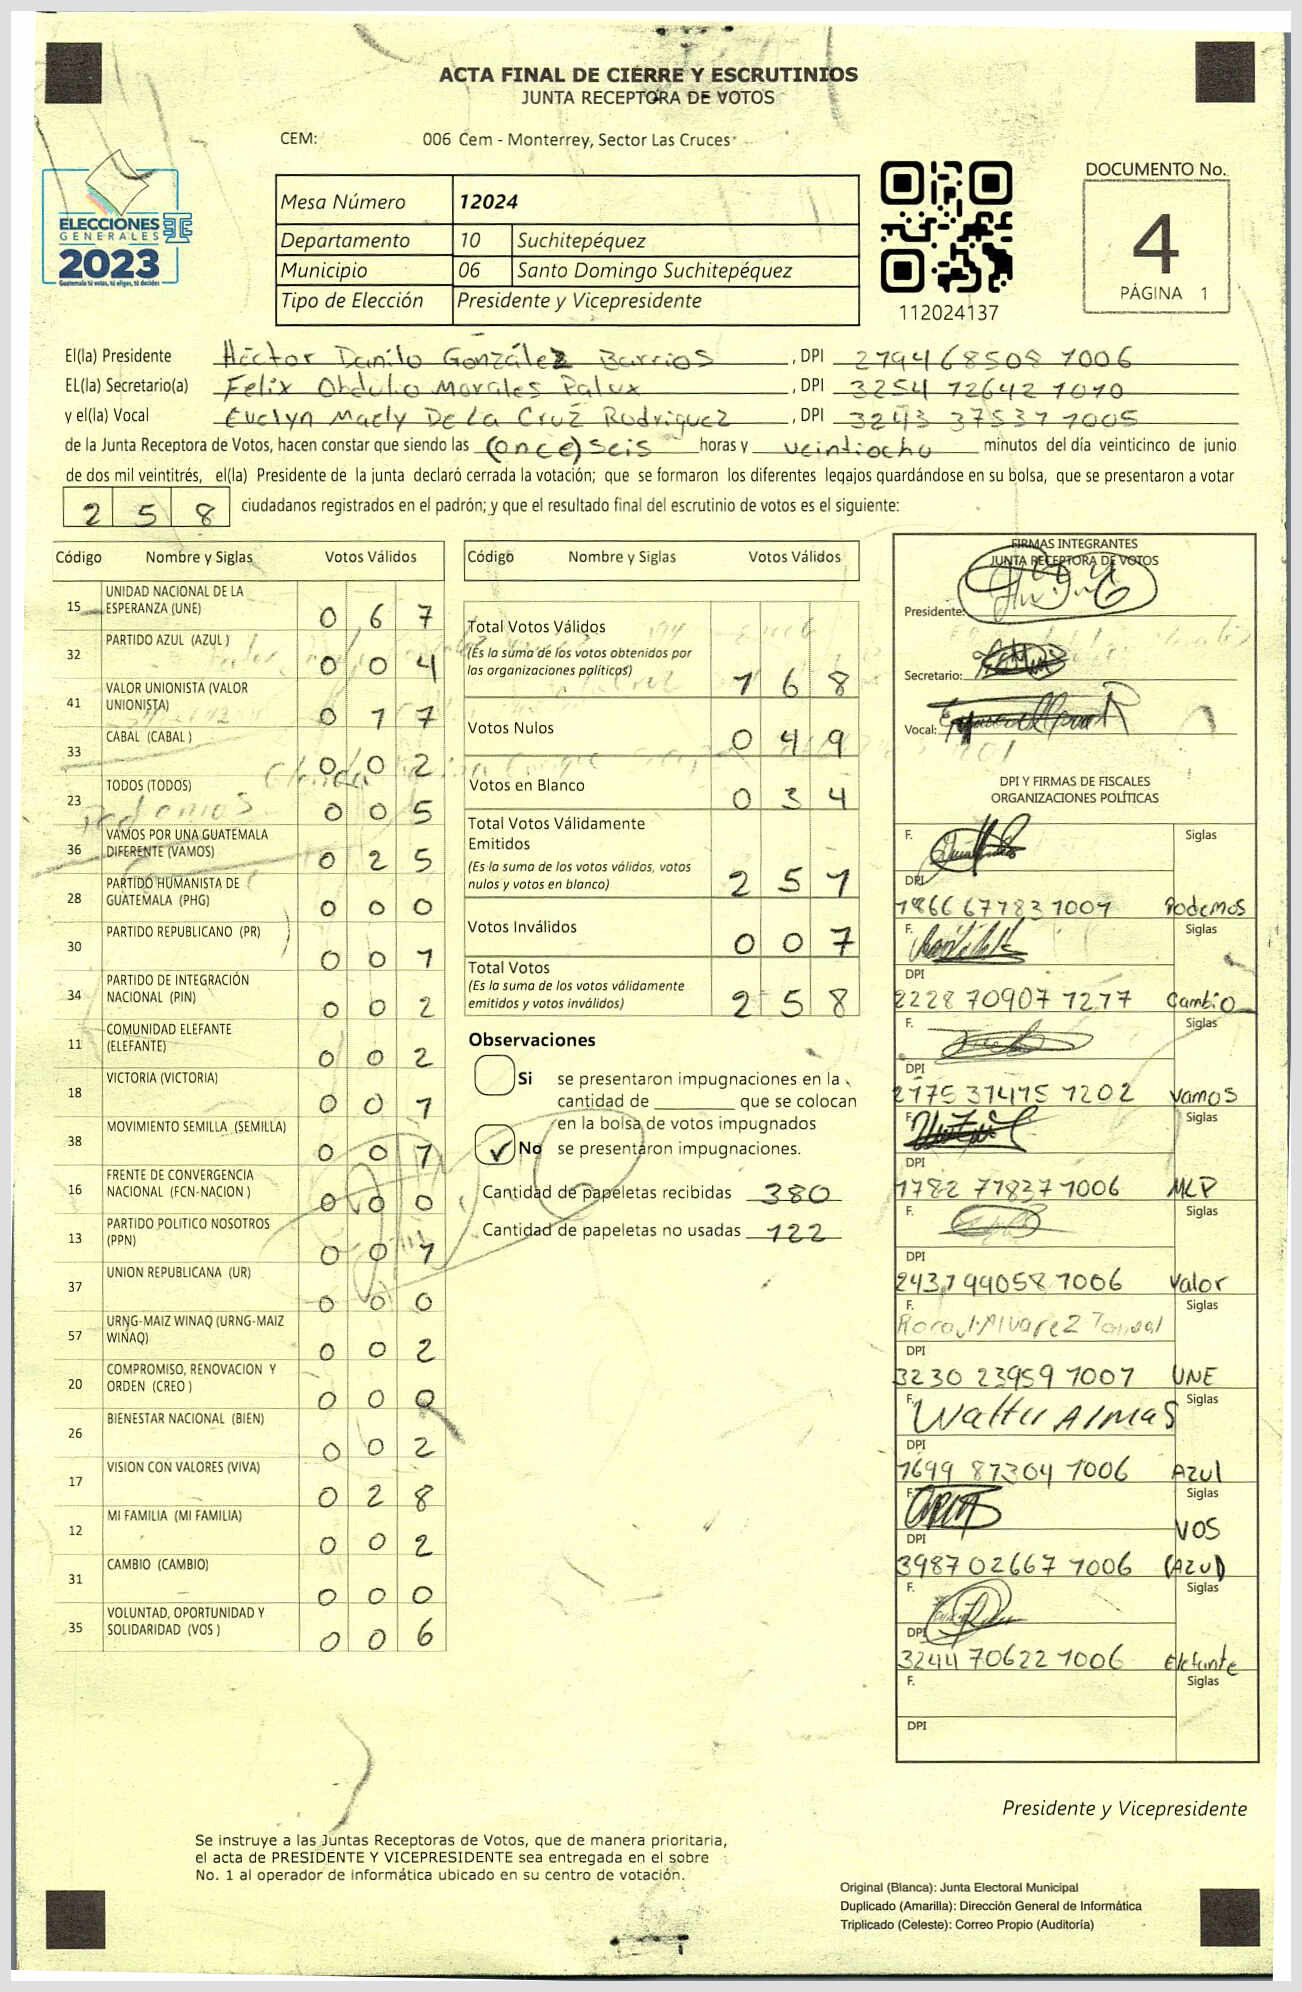 ACTA FINAL DE CIERRE Y ESCRUTINIOS
JUNTA RECEPTORA DE VOTOS
CEM: 006 Cem - Monterrey, Sector Las Cruces
ELECCIONES
GENERALES
2023
Guatemala tú votas, tú eliges, tú decides
Mesa Número 12024
Departamento 10 Suchitepéquez
Municipio 06 Santo Domingo Suchitepéquez
Tipo de Elección Presidente y Vicepresidente
112024137
DOCUMENTO No.
4
PÁGINA 1
El(la) Presidente Héctor Danilo González Barrios, DPI 279468508 1006
EL(la) Secretario(a) Felix Obdulio Morales Palux, DPI 3254 72642 1010
y el(la) Vocal Evelyn Maely De La Cruz Rodriguez, DPI 3243 37537 1005
de la Junta Receptora de Votos, hacen constar que siendo las (once) seis horas y veintiocho minutos del día veinticinco de junio
de dos mil veintitrés, el(la) Presidente de la junta declaró cerrada la votación; que se formaron los diferentes legajos guardándose en su bolsa, que se presentaron a votar
258 ciudadanos registrados en el padrón; y que el resultado final del escrutinio de votos es el siguiente:
Código Nombre y Siglas Votos Válidos
15 UNIDAD NACIONAL DE LA ESPERANZA (UNE) 0 6 7
32 PARTIDO AZUL (AZUL ) 0 0 4
41 VALOR UNIONISTA (VALOR UNIONISTA) 0 1 7
33 CABAL (CABAL ) 0 0 2
23 TODOS (TODOS) 0 0 5
36 VAMOS POR UNA GUATEMALA DIFERENTE (VAMOS) 0 2 5
28 PARTIDO HUMANISTA DE GUATEMALA (PHG) 0 0 0
30 PARTIDO REPUBLICANO (PR) 0 0 1
34 PARTIDO DE INTEGRACIÓN NACIONAL (PIN) 0 0 2
11 COMUNIDAD ELEFANTE (ELEFANTE) 0 0 2
18 VICTORIA (VICTORIA) 0 0 1
38 MOVIMIENTO SEMILLA (SEMILLA) 0 0 1
16 FRENTE DE CONVERGENCIA NACIONAL (FCN-NACION ) 0 0 0
13 PARTIDO POLITICO NOSOTROS (PPN) 0 0 1
37 UNION REPUBLICANA (UR) 0 0 0
57 URNG-MAIZ WINAQ (URNG-MAIZ WINAQ) 0 0 2
20 COMPROMISO, RENOVACION Y ORDEN (CREO ) 0 0 0
26 BIENESTAR NACIONAL (BIEN) 0 0 2
17 VISION CON VALORES (VIVA) 0 2 8
12 MI FAMILIA (MI FAMILIA) 0 0 2
31 CAMBIO (CAMBIO) 0 0 0
35 VOLUNTAD, OPORTUNIDAD Y SOLIDARIDAD (VOS ) 0 0 6
Código Nombre y Siglas Votos Válidos
Total Votos Válidos 1 6 8
(Es la suma de los votos obtenidos por
las organizaciones políticas)
Votos Nulos 0 4 9
Votos en Blanco 0 3 4
Total Votos Válidamente
Emitidos
(Es la suma de los votos válidos, votos
nulos y votos en blanco) 2 5 1
Votos Inválidos 0 0 7
Total Votos
(Es la suma de los votos válidamente
emitidos y votos inválidos) 2 5 8
Observaciones
Si se presentaron impugnaciones en la
cantidad de ________ que se colocan
en la bolsa de votos impugnados
✓ No se presentaron impugnaciones.
Cantidad de papeletas recibidas 380
Cantidad de papeletas no usadas 122
FIRMAS INTEGRANTES
JUNTA RECEPTORA DE VOTOS
Presidente:
Secretario:
Vocal:
DPI Y FIRMAS DE FISCALES
ORGANIZACIONES POLÍTICAS
F. Siglas
DPI
1866 67783 1001 Podemos
F. Siglas
DPI
2228 70907 1217 Cambio
F. Siglas
DPI
2175 31415 1202 Vamos
F. Siglas
DPI
1782 77837 1006 MLP
F. Siglas
DPI
2431 99058 1006 Valor
F. Siglas
DPI
3230 23959 1007 UNE
F. Siglas
Walter Almas
DPI
1699 87304 1006 Azul
F. Siglas
VOS
DPI
3987 02667 1006 (Azul)
F. Siglas
DPI
3244 70622 1006 Elefante
F. Siglas
DPI
Presidente y Vicepresidente
Se instruye a las Juntas Receptoras de Votos, que de manera prioritaria,
el acta de PRESIDENTE Y VICEPRESIDENTE sea entregada en el sobre
No. 1 al operador de informática ubicado en su centro de votación.
Original (Blanca): Junta Electoral Municipal
Duplicado (Amarilla): Dirección General de Informática
Triplicado (Celeste): Correo Propio (Auditoría)